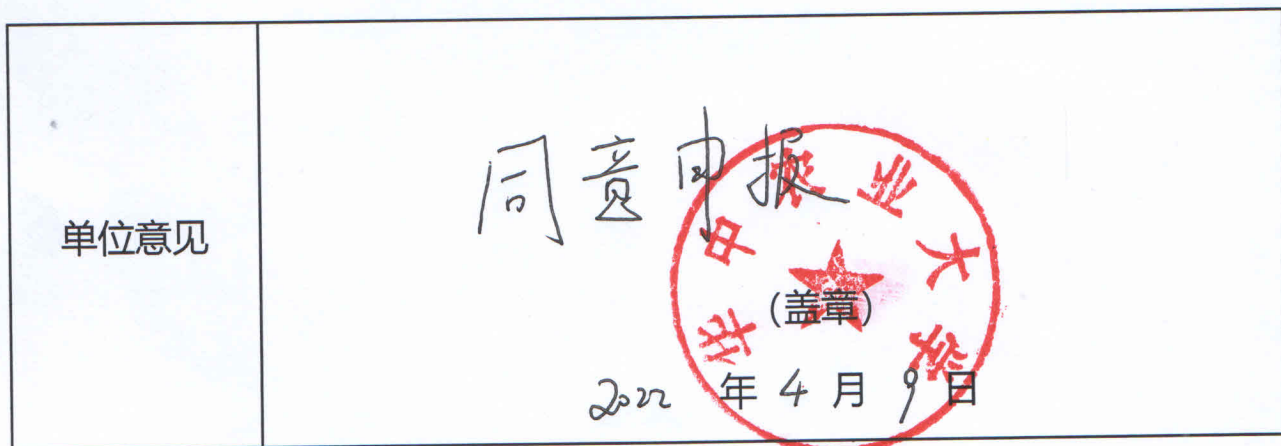 单位意见
同意申报
华中农业大学
(盖章)
2022 年 4 月 9 日